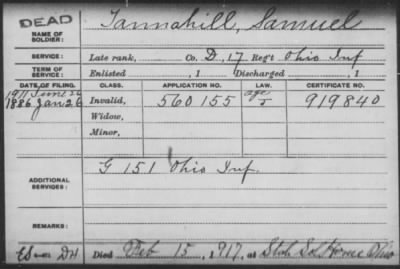 DEAD
NAME OF SOLDIER: Tannahill, Samuel
SERVICE: Late rank, Co. D, 17 Reg't Ohio Inf
TERM OF SERVICE: Enlisted , 1 Discharged , 1
DATE OF FILING. CLASS. APPLICATION NO. LAW. CERTIFICATE NO.
1911 June 26 age
1886 Jan 26 Invalid, 560 155 J 919840
Widow,
Minor,
ADDITIONAL SERVICES: G 151 Ohio Inf.
REMARKS:
Died Feb 15, 1917, at Home Ohio